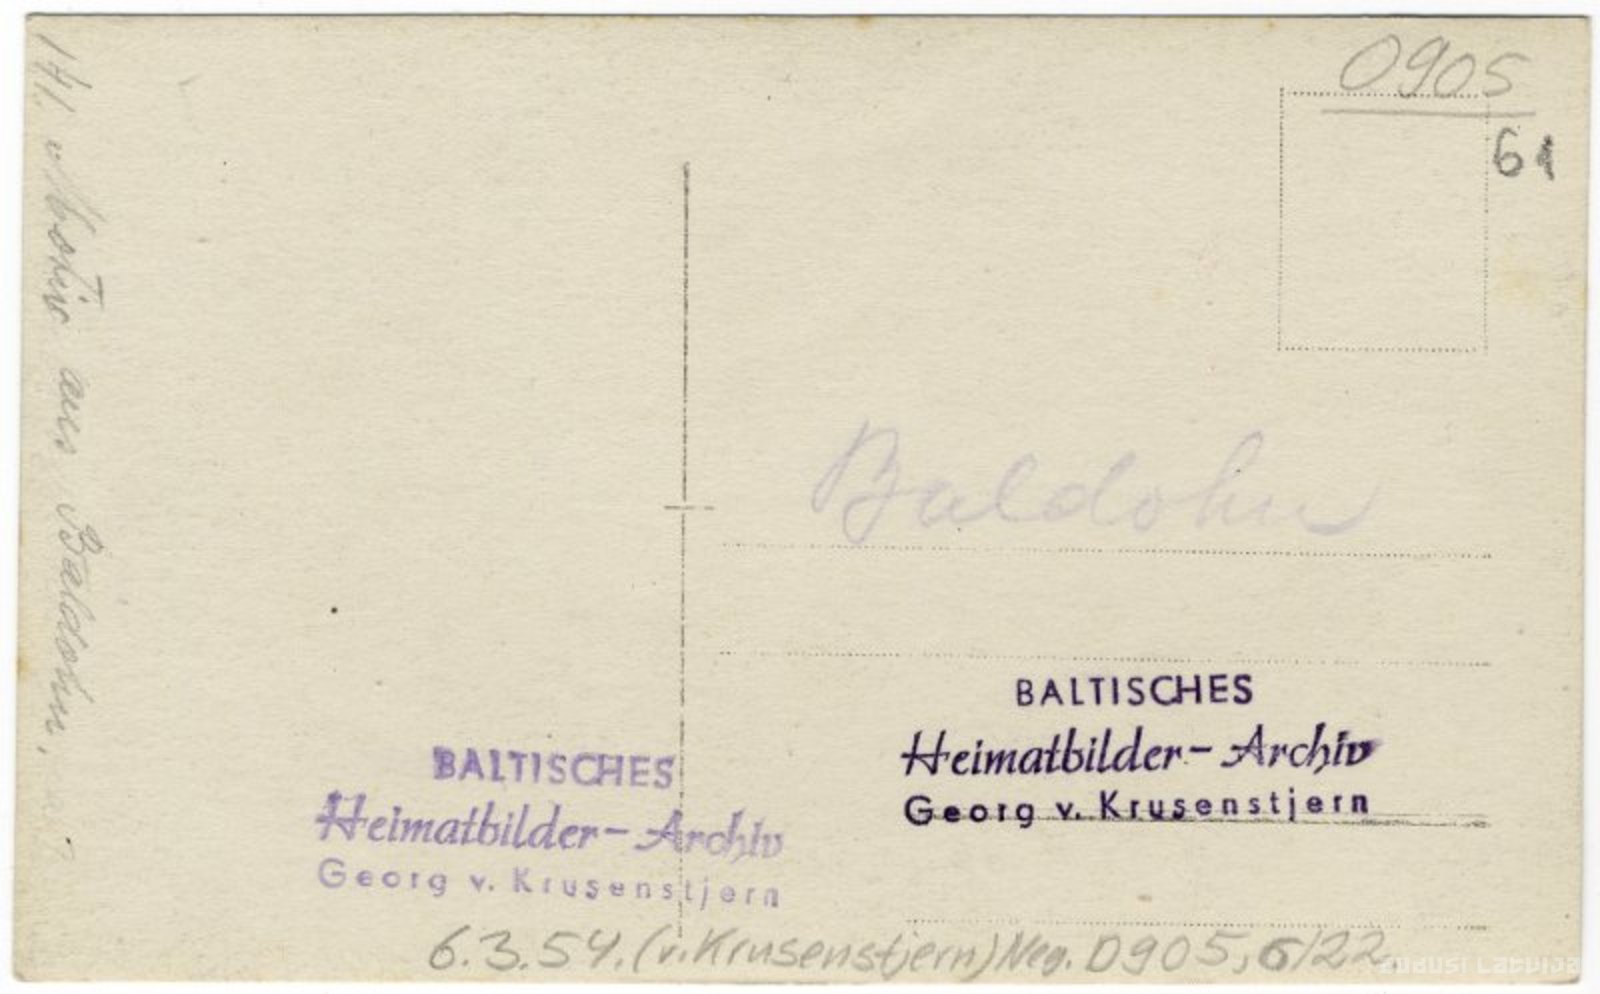 0905
61
141. Motiv aus Baldohn,
Baldohn
BALTISCHES
Heimatbilder-Archiv
Georg v. Krusenstjern
BALTISCHES
Heimatbilder-Archiv
Georg v. Krusenstjern
6.3.54. (v. Krusenstjern) Neg. D905, 6/22.
zudusi Latvija